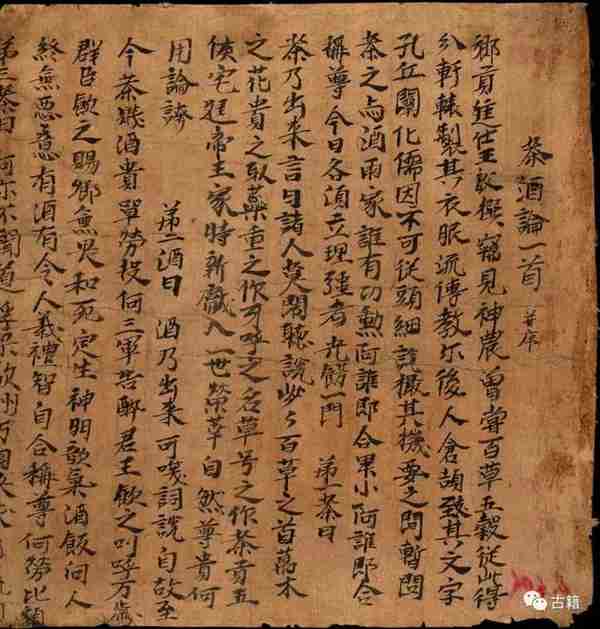 茶酒論一首 并序
鄉貢進士王敷撰 竊見神農曾嘗百草五穀從此得
分軒轅製其衣服流傳教示後人倉頡致其文字
孔丘闡化儒因不可從頭細說撮其要之暫問
茶之与酒兩家誰有功勳阿誰即合卑小阿誰即合
稱尊今日各須立理強者光餝一門 第一茶曰
茶乃出來言曰諸人莫閙聽說些々百草之首萬木
之花貴之取蘂重之呼之名草号之作茶貢五
侯宅帝王家時新獻入一世榮華自然尊貴何
用論誇 第二酒曰 酒乃出來可咲詞說自古至
今茶賤酒貴單醪投河三軍告醉君王飲之叫呼万歲
群臣飲之賜卿無畏和死定生神明歆氣酒飯向人
終無惡意有酒有令人義禮智自合稱尊何勞比類
第三茶曰 阿你不聞道浮梁歙州万國來求
古籍